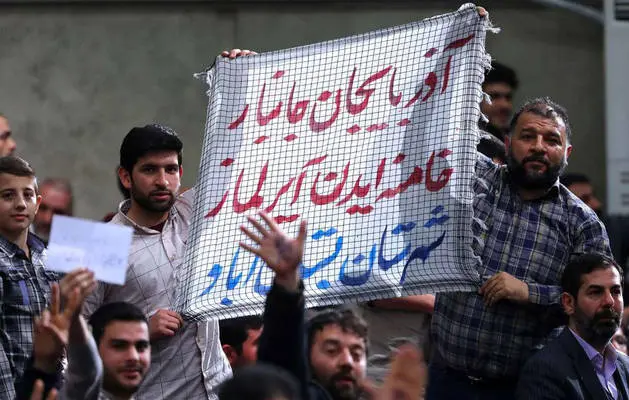 آذربایجان جانباز
خامنه ایدن آیریلماز
شهرستان بستان آباد